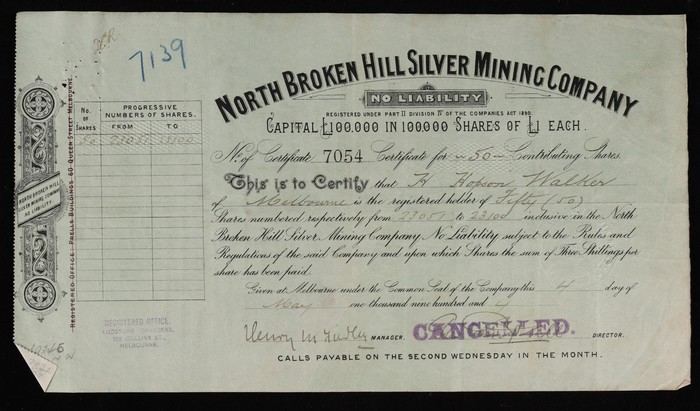 7139
NORTH BROKEN HILL SILVER MINING COMPANY
NO LIABILITY
REGISTERED UNDER PART II DIVISION IV OF THE COMPANIES ACT 1890.
CAPITAL £100.000 IN 100000 SHARES OF £1 EACH.
No. of Certificate 7054 Certificate for 50 Contributing Shares.
This is to Certify that H Hopson Walker
of Melbourne is the registered holder of Fifty (50)
Shares numbered respectively from 23051 to 23100 inclusive in the North
Broken Hill Silver Mining Company No Liability subject to the Rules and
Regulations of the said Company and upon which Shares the sum of Three Shillings per
share has been paid.
Given at Melbourne under the Common Seal of the Company this 4 day of
May one thousand nine hundred and 4
MANAGER. CANCELLED. DIRECTOR.
CALLS PAYABLE ON THE SECOND WEDNESDAY IN THE MONTH.
NO. OF SHARES
PROGRESSIVE NUMBERS OF SHARES.
FROM TO
50 23051 23100
REGISTERED OFFICE. PRELLS BUILDINGS 60 QUEEN STREET MELBOURNE.
NORTH BROKEN HILL
SILVER MINING COMPANY
NO LIABILITY
REGISTERED OFFICE,
COLLINS ST.,
MELBOURNE.